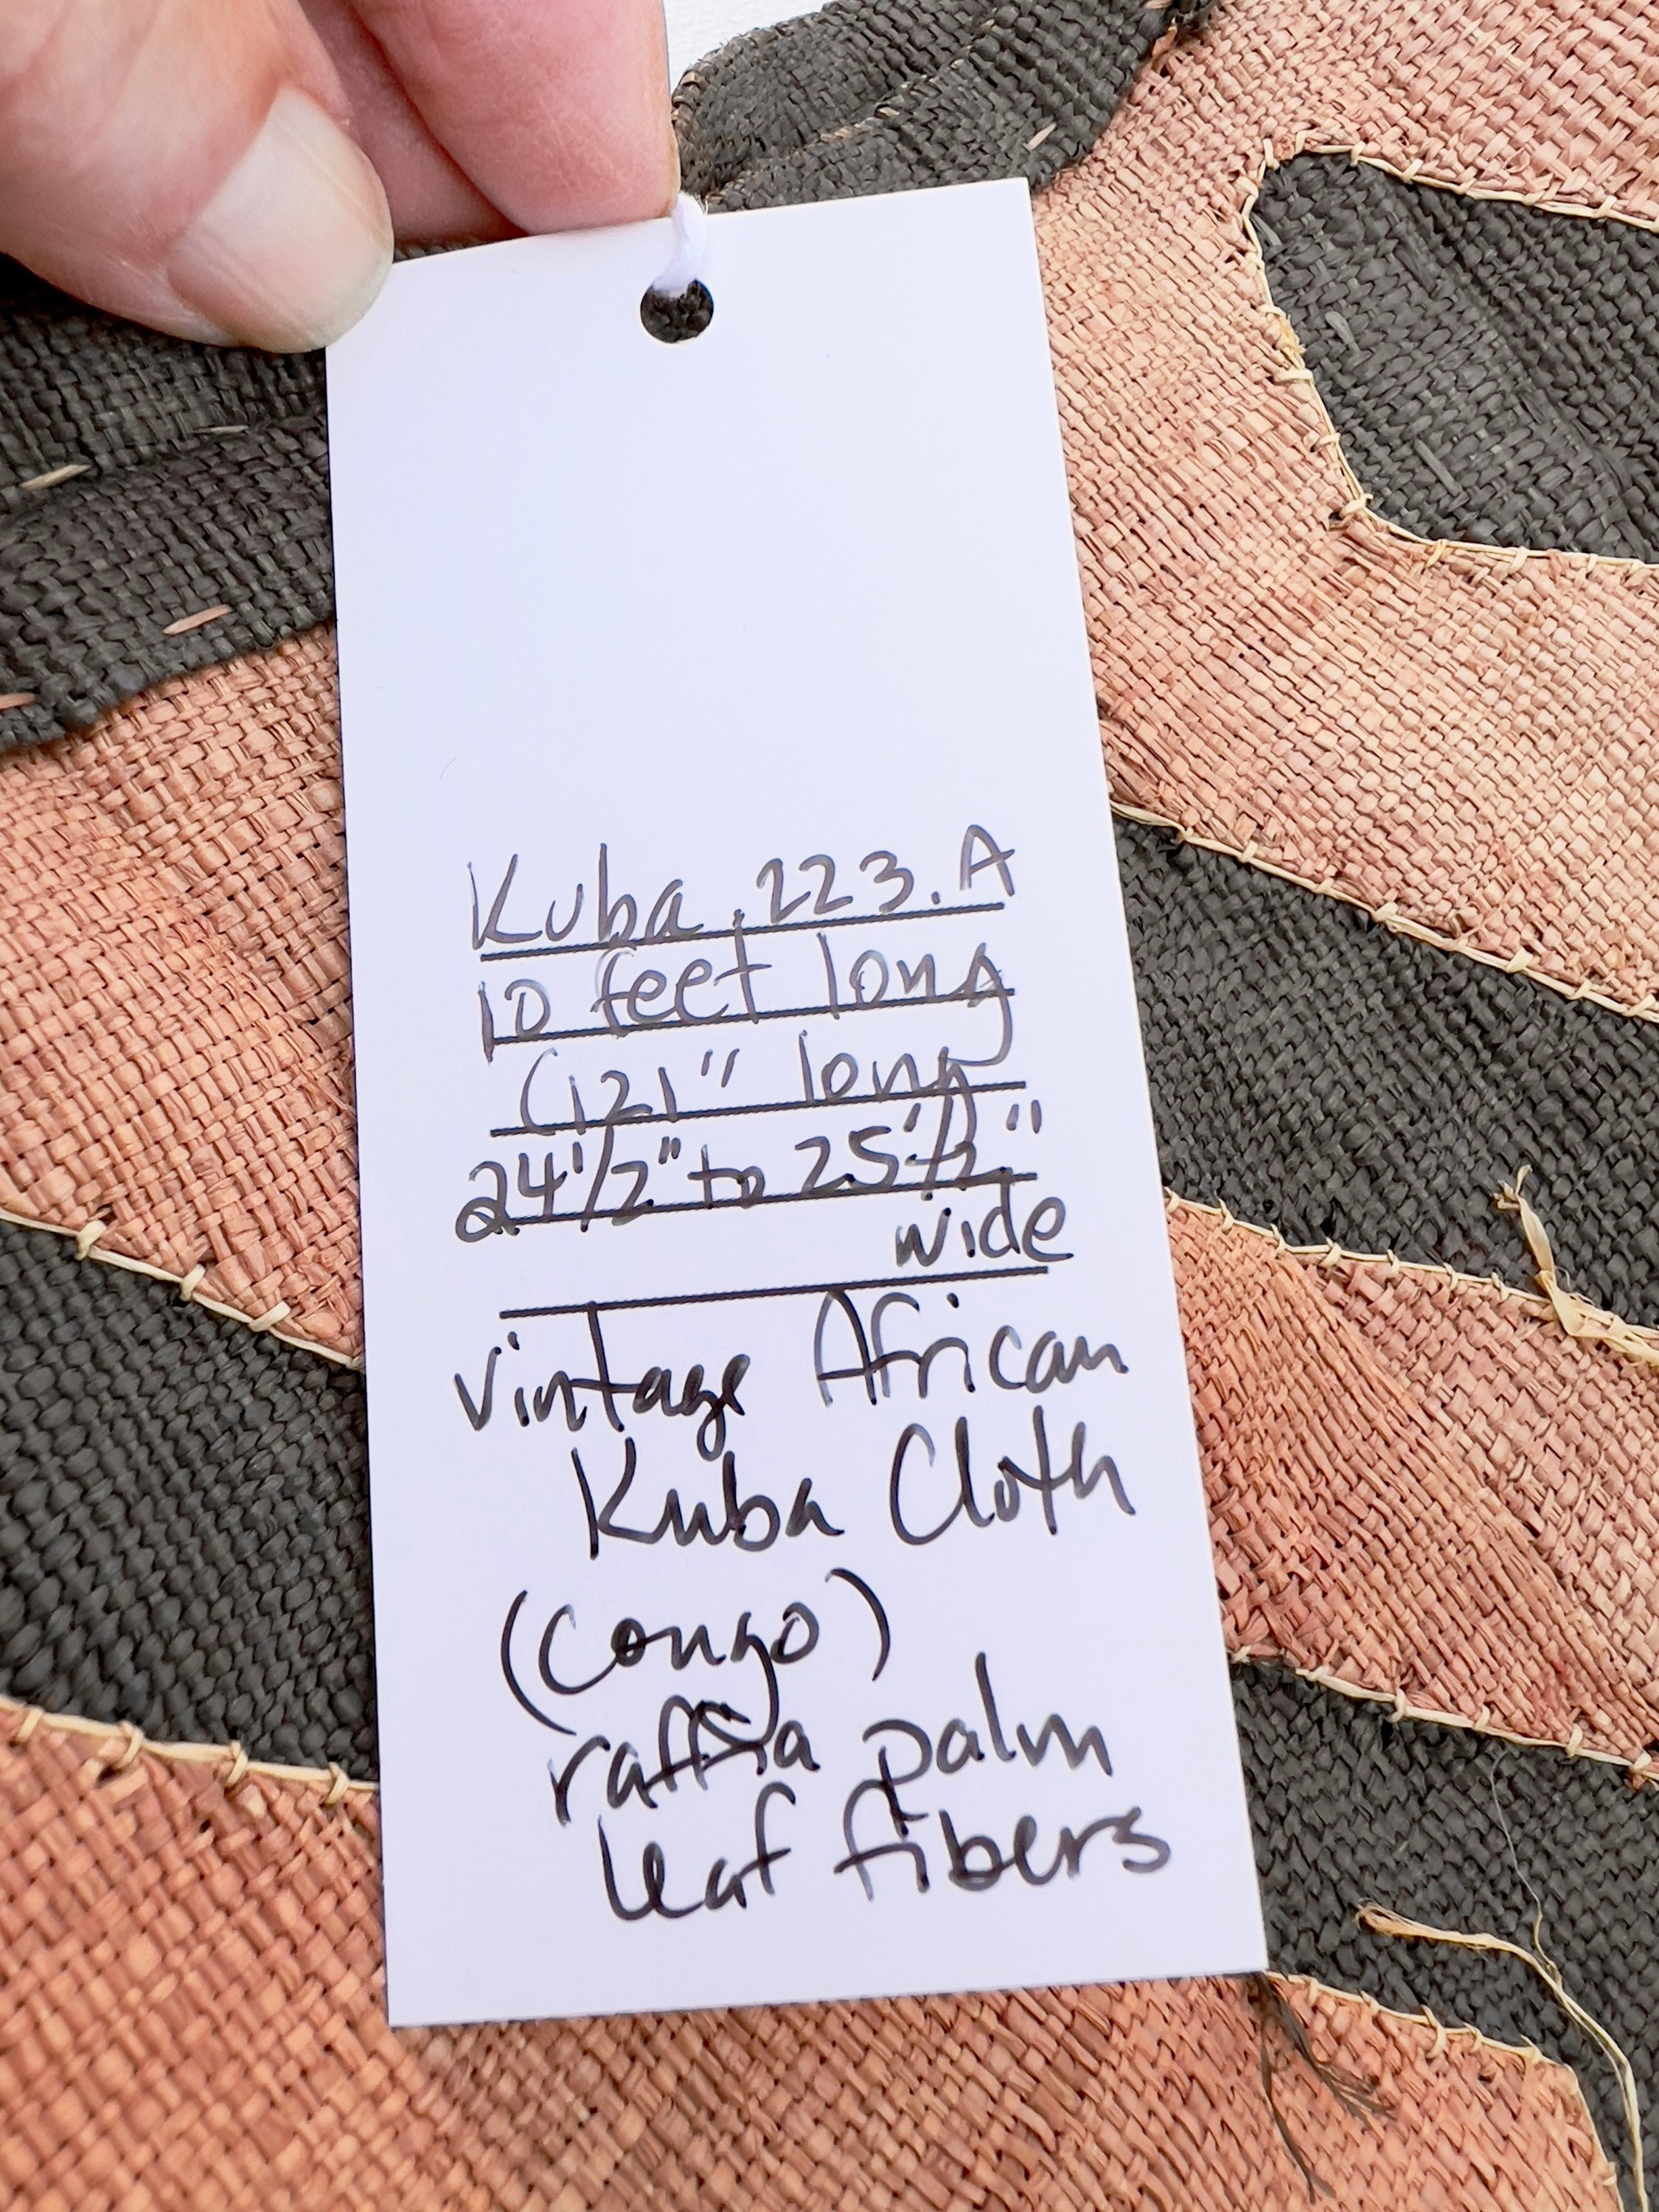 Kuba.223.A
10 feet long
(121" long
24 1/2" to 25 1/2"
wide
Vintage African
Kuba Cloth
(Congo)
raffia palm
leaf fibers